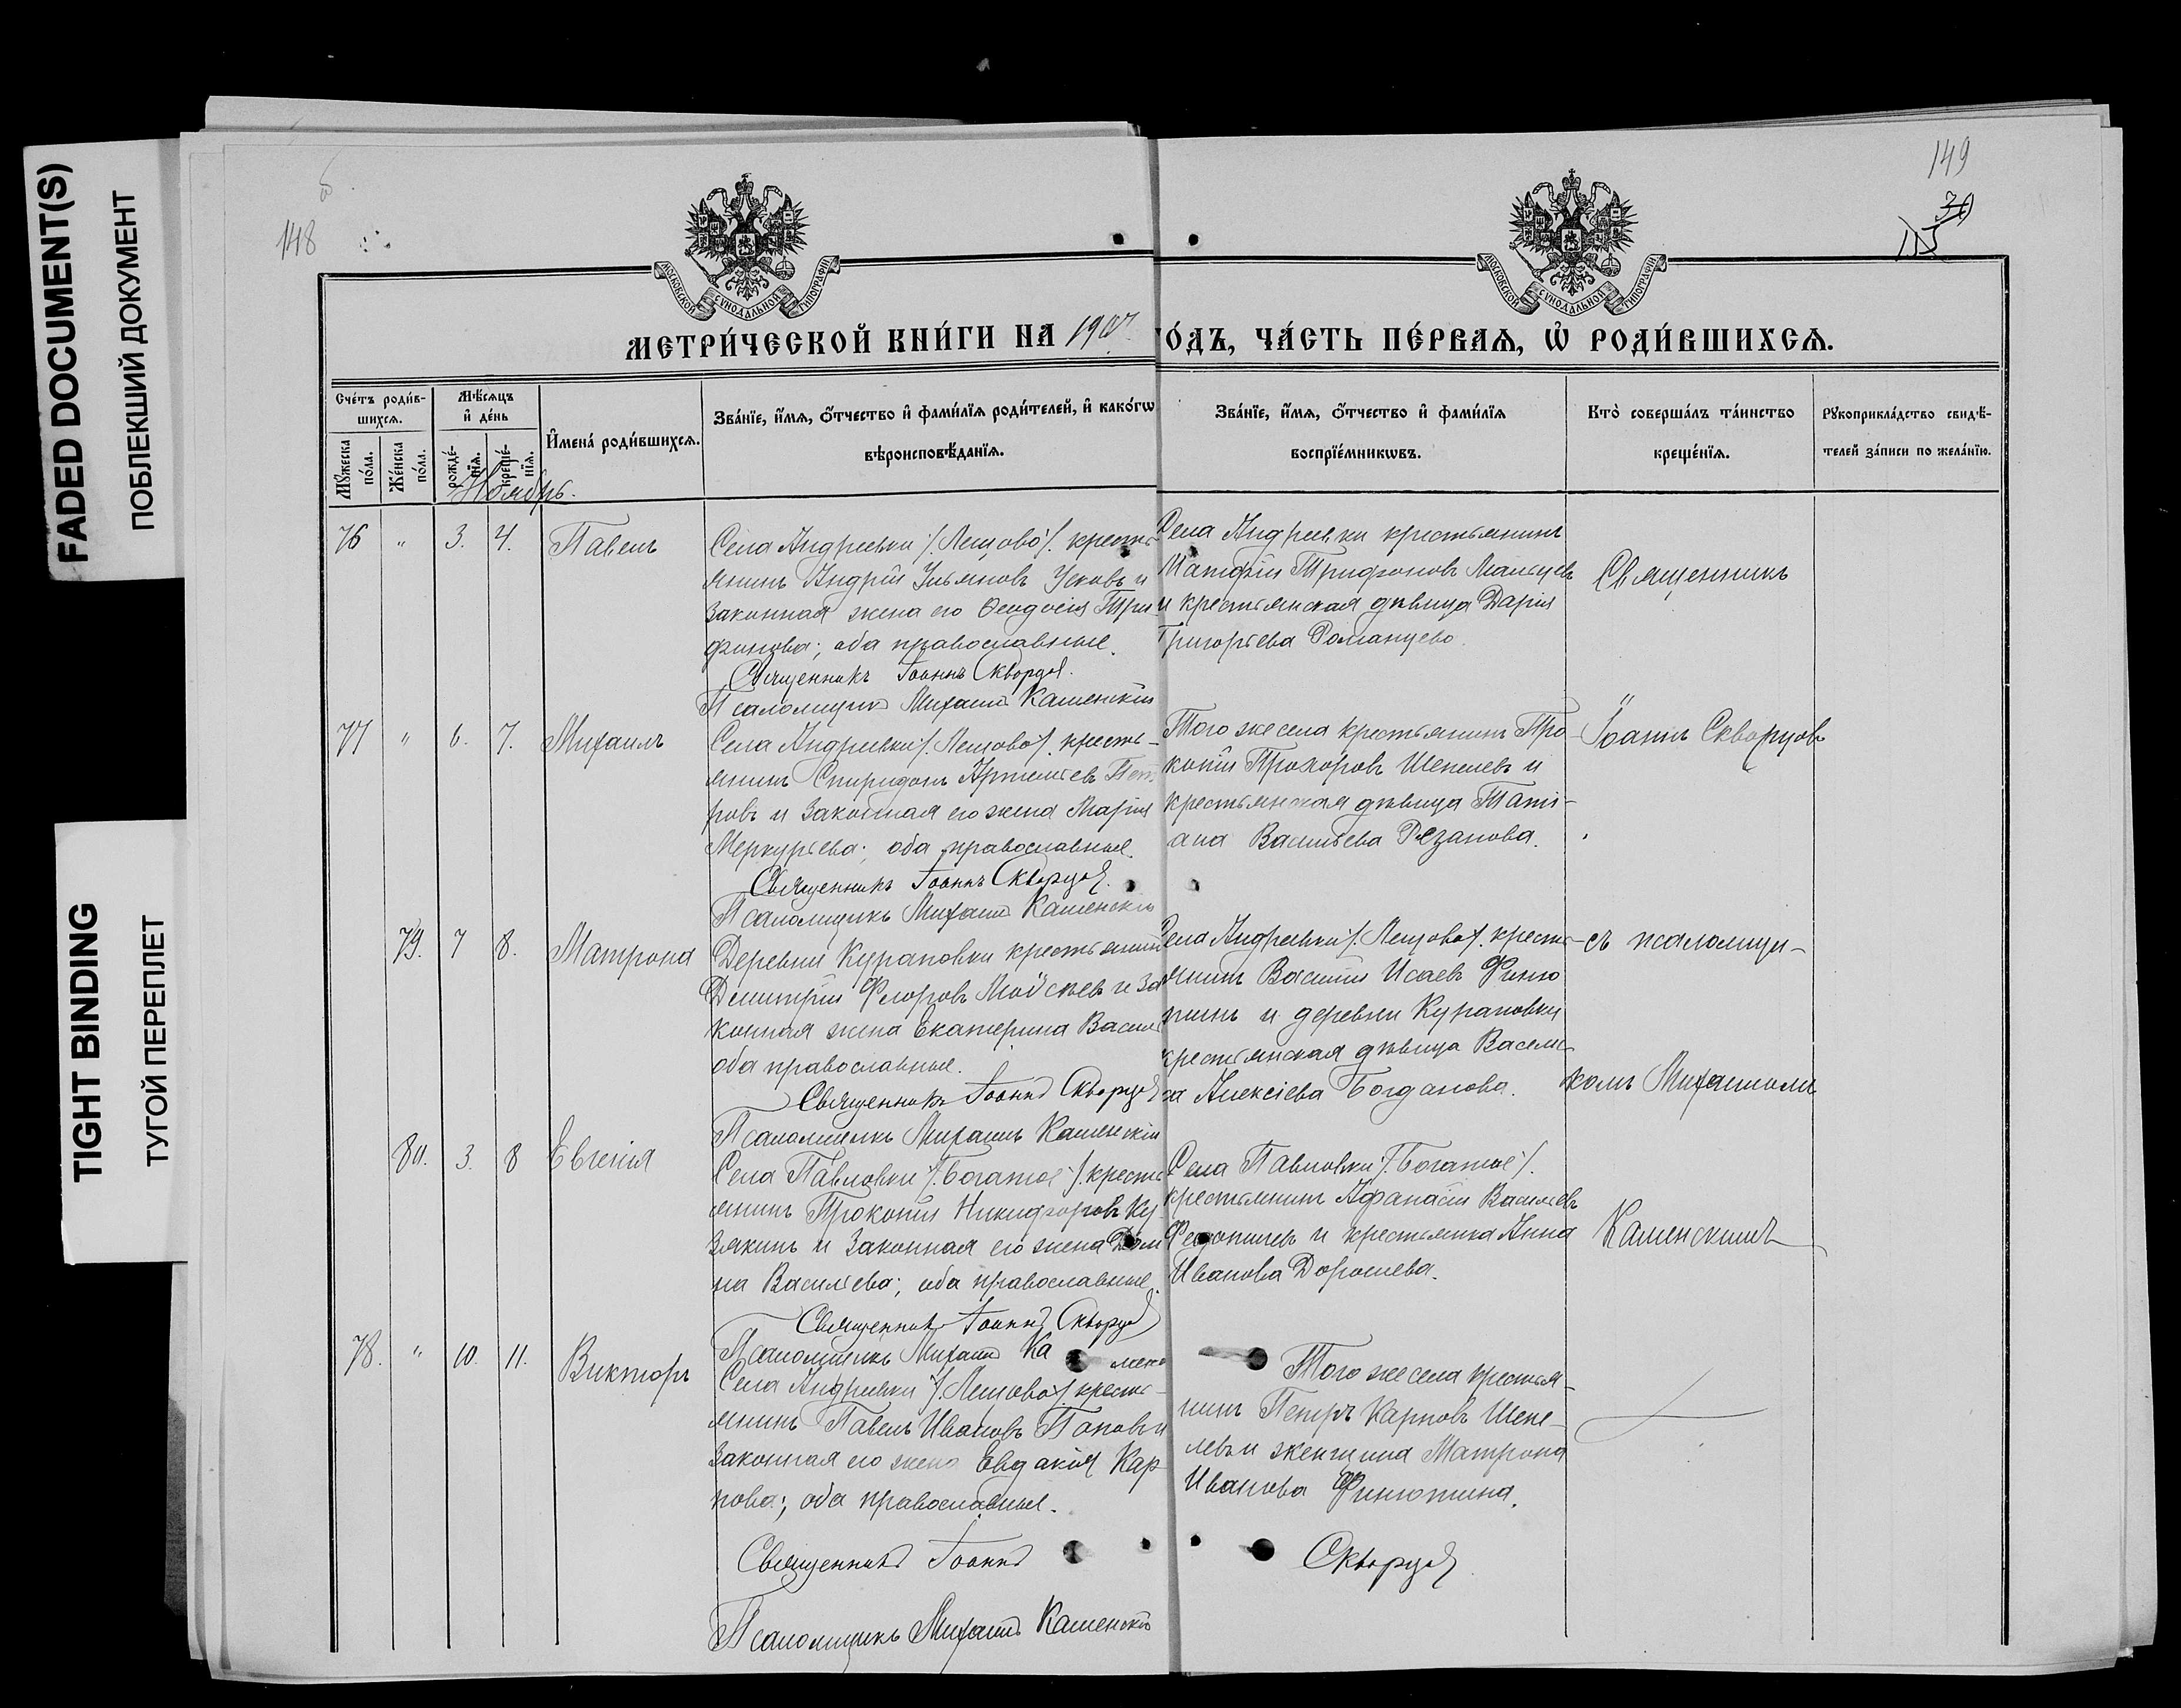 FADED DOCUMENT(S)
ПОБЛЕКШИЙ ДОКУМЕНТ
TIGHT BINDING
ТУГОЙ ПЕРЕПЛЕТ
148
149
МОСКОВСКОЙ СѴНОДАЛЬНОЙ ТИПОГРАФІИ
МОСКОВСКОЙ СѴНОДАЛЬНОЙ ТИПОГРАФІИ
МЕТРИ́ЧЕСКОЙ КНИ́ГИ НА 1907
ГО́ДЪ, ЧА́СТЬ ПЕ́РВАѦ, Ѽ РОДИ́ВШИХСѦ.
Сче́тъ роди́в-
шихсѧ.
Мꙋ́жеска по́ла.
Же́нска по́ла.
Мѣ́сѧцъ
и҆ де́нь
рожде́-
нїѧ.
креще́-
нїѧ.
И҆мена́ роди́вшихсѧ.
Зва́нїе, и҆́мѧ, о҆́тчество и҆ фами́лїѧ роди́телей, и҆ како́гѡ
вѣроисповѣ́данїѧ.
Зва́нїе, и҆́мѧ, о҆́тчество и҆ фами́лїѧ
воспрїе́мникѡвъ.
Кто̀ соверша́лъ та́инство
креще́нїѧ.
Рꙋкоприкла́дство свидѣ́-
телей за́писи по жела́нїю.
Ноябрь.
76 " 3. 4. Павелъ
Села Андреевки /.Лещово/. кресть-
янинъ Андрей Ульяновъ Усковъ и
законная жена его Ѳеодосія Три
фонова; оба православные.
Священникъ Іоаннъ Скворцов
Псаломщикъ Михаилъ Каменскій
Села Андреевки крестьянинъ
Матфій Трифоновъ
и крестьянская дѣвица Дарія
Григорьева Романцева.
Священникъ
77 " 6. 7. Михаилъ
Села Андреевки /.Лещово/. кресть-
янинъ Спиридонъ Артемьевъ Пет
ровъ и законная его жена Марія
Меркурьева; оба православные.
Священникъ Іоаннъ Скворцов
Псаломщикъ Михаилъ Каменскій
Того же села крестьянинъ Про-
копій Прохоровъ Шепелевъ и
крестьянская дѣвица Тати-
ана Васильева Рязанова.
Іоаннъ Скворцовъ
79. 7 8. Матрона
Деревни Курановки крестьянинъ
Димитрій Ѳеодоровъ Мойсеевъ и за
конная жена Екатерина Васил
оба православные.
Священникъ Іоаннъ Скворцов
Псаломщикъ Михаилъ Каменскій
Села Андреевки /.Лещово/. кресть-
янинъ Василій Исаевъ Финю
нинъ и деревни Курановки
крестьянская дѣвица Васели-
са Алексіева Богданова.
съ псаломщи-
комъ Михаиломъ
80. 3. 8 Евгенія
Села Павловки /.Богатое/. кресть
янинъ Прокопій Никифоровъ Ку
зякинъ и законная его жена Дом
на Васильева; оба православные.
Священникъ Іоаннъ Скворцов
Псаломщикъ Михаилъ Ка менс
Села Павловки /.Богатое/.
крестьянинъ Афанасій Васильевъ
и крестьянка Анна
Иванова Дорошева.
Каменскимъ
78. " 10. 11. Викторъ
Села Андреевки /.Лещово/. кресть-
янинъ Павелъ Ивановъ Паповъ и
законная его жена Евдакія Кар
пова; оба православные.
Священникъ Іоаннъ Скворцов
Псаломщикъ Михаилъ Каменскій
Того же села крестья-
нинъ Петръ Карповъ Шепе-
левъ и женщина Матрона
Иванова Финютина.